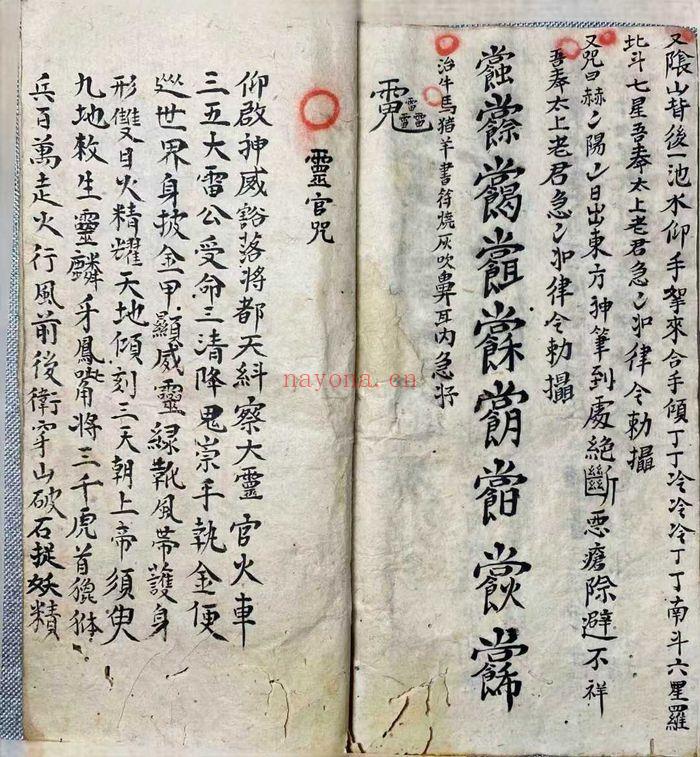 又陰山背後一池水仰手拏來合手傾丁丁冷冷冷丁丁南斗六星羅
北斗七星吾奉太上老君急〻如律令勅攝
又咒曰赫〻陽〻日出東方神筆到處絕斷惡瘡除避不祥
吾奉太上老君急〻如律令勅攝
治牛馬猪羊書符燒灰吹鼻耳內急
靈官咒
仰啟神威豁落將都天糾察大靈官火車
三五大雷公受命三清降鬼祟手執金便
巡世界身披金甲顯威靈綠靴風帶護身
形雙目火精耀天地傾刻三天朝上帝須臾
九地救生靈麟牙鳳嘴將三千虎首貔貅
兵百萬走火行風前後衛穿山破石捉妖精
nayona.cn